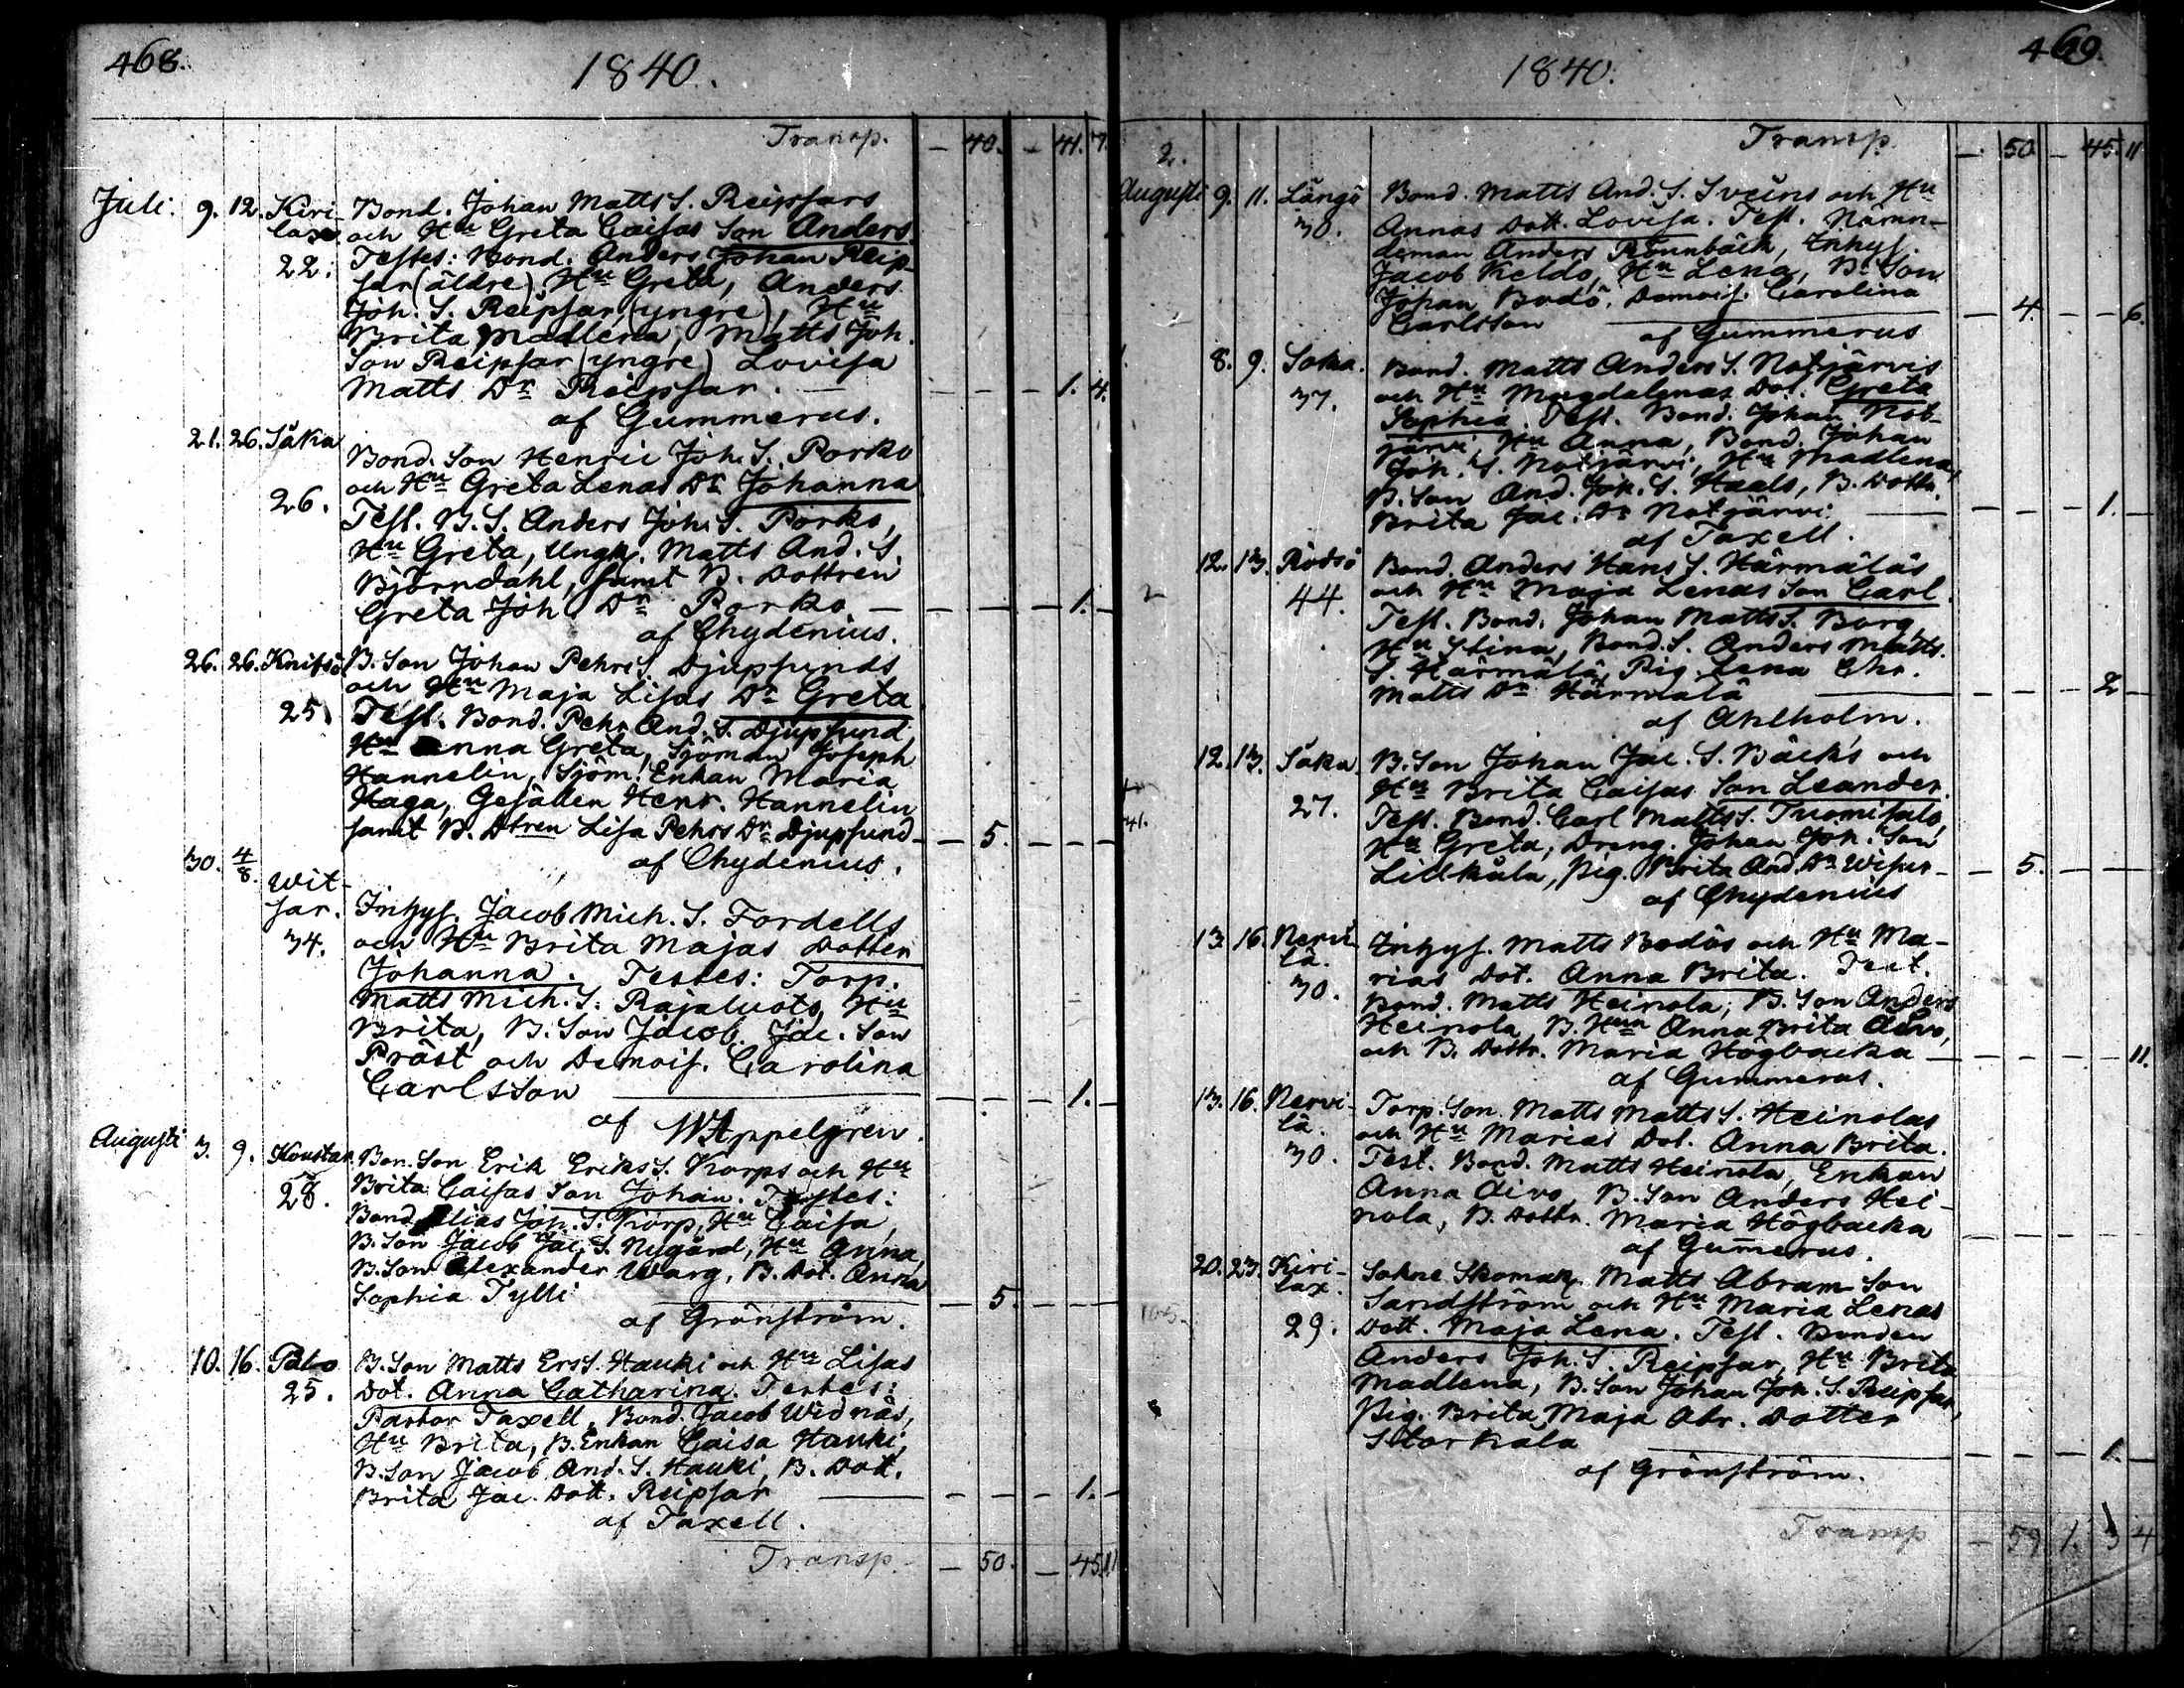 468.
1840.
Transp. — 40. — 41. 7.
Juli. 9. 12. Kiri- Bond. Johan Matts S. Reipsars
lax. och Hu Greta Caisas Son Anders.
22. Testes: Bond. Anders Johan Reip-
sar (äldre), Hu Greta, Anders
Joh. S. Reipsar (yngre), Hu
Brita Madlena, Matts Joh.
Son Reipsar (yngre) Lovisa
Matts Dr Reipsar. — — — — 1. 4.
af Gummerus.
21. 26. Såka
Bond. Son Henric Joh. S. Porko
och Hu Greta Lenas Dr Johanna
26. Test. B. S. Anders Joh. S. Porko,
Hu Greta, Ungk. Matts And. S.
Björndahl, samt B. Dottren
Greta Joh. Dr Porko — — — — 1. —
af Chydenius.
26. 26. Knifsö B. Son Johan Pehrs S. Djupsunds
och Hu Maja Lisas Dr Greta
25. Test. Bond. Pehr And. S. Djupsund,
Hu Anna Greta, Sjöman Joseph
Hannelin, Sjöm. Enkan Maria
Haga, Gesällen Henr. Hannelin
samt B. Dtren Lisa Pehrs Dr Djupsund — — 5. — — —
30. 4/8. af Chydenius.
Wit-
sar. Inhys. Jacob Mich. S. Fordells
34. och Hu Brita Majas Dotter
Johanna. Testes: Torp.
Matts Mich. S. Rajaluoto, Hu
Brita, B. Son Jacob Jac. Son
Präst och Demois. Carolina
Carlsson — — — — 1. —
af W Appelgren.
Augusti 3. 9. Koustar. Bon. Son Erik Eriks S. Korps och Hu
28. Brita Caisas Son Johan. Testes:
Bond. Elias Joh. S. Korp, Hu Caisa,
B. Son Jacob Jac. S. Nygård, Hu Anna,
B. Son Alexander Warg, B. Dot. Anna
Sophia Tylli — — 5. — — —
af Grönström.
10. 16. Palo B. Son Matts Ers S. Hauki och Hu Lisas
25. Dot. Anna Catharina. Testes:
Pastor Taxell, Bond. Jacob Widnäs,
Hu Brita, B. Enkan Caisa Hauki,
B. Son Jacob And. S. Hauki, B. Dot.
Brita Jac. Dott. Reipsar — — — — 1. —
af Taxell.
Transp. — 50. — 45. 11
469.
1840.
2. Transp. — 50. — 45. 11
Augusti 9. 11. Långö Bond. Matts And. S. Sveins och Hu
30. Annas Dott. Lovisa. Test. Nämn-
deman Anders Rönnbäck, Inhys.
Jacob Keldo, Hu Lena, B. Son
Johan Bodö, Demois. Carolina
Carlsson — — 4. — — 6.
af Gummerus
8. 9. Soka. Bond. Matts Anders S. Notjärvis
37. och Hu Magdalenas Dot. Greta
Sophia Test. Bond. Johan Not-
järvi, Hu Anna, Bond. Johan
Joh. S. Notjärvi, Hu Madlena,
B. Son And. Joh. S. Haals, B. Dottr.
Brita Jac. Dr Notjärvi — — — — 1. —
af Taxell.
12. 13. Rödsö Bond. Anders Hans S. Härmäläs
44. och Hu Maja Lenas Son Carl.
Test. Bond. Johan Matts S. Borg,
Hu Stina, Bond. S. Anders Matts.
S. Härmälä, Pig. Lena Chr.
Matts Dr Härmälä — — — — 2 —
af Ahlholm.
12. 13. Såka. B. Son Johan Jac. S. Bäcks och
27. Hu Brita Caisas Son Leander.
41. Test. Bond. Carl Matts S. Tuomisalo,
Hu Greta, Dreng. Johan Joh. Son
Lillkåla, Pig. Brita And. Dr Wisur — — 5. — — —
af Chydenius
13. 16. Nervi- Inhys. Matts Bodös och Hu Ma-
lä. rias Dot. Anna Brita. Test.
30. Bond. Matts Heinola, B. Son Anders
Heinola, B. Hun Anna Brita Aivo,
och B. Dottr. Maria Högbacka — — — — — 11.
af Gummerus.
13. 16. Nervi- Torp. Son. Matts Matts S. Heinolas
lä. och Hu Marias Dot. Anna Brita.
30. Test. Bond. Matts Heinola, Enkan
Anna Aivo, B. Son Anders Hei-
nola, B. Dottr. Maria Högbacka
af Gumerus. — — — — —
20. 23. Kiri- Sokne Skomak. Matts Abram Son
lax. Sandström och Hu Maria Lenas
29. Dott. Maja Lena. Test. Bonden
Anders Joh. S. Reipsar, Hu Brita
Madlena, B. Son Johan Joh. S. Reipsar,
Pig. Brita Maja Abr. Dotter
Storkåla — — — — 1. —
af Grönström.
Transp — 59 1. 3 4